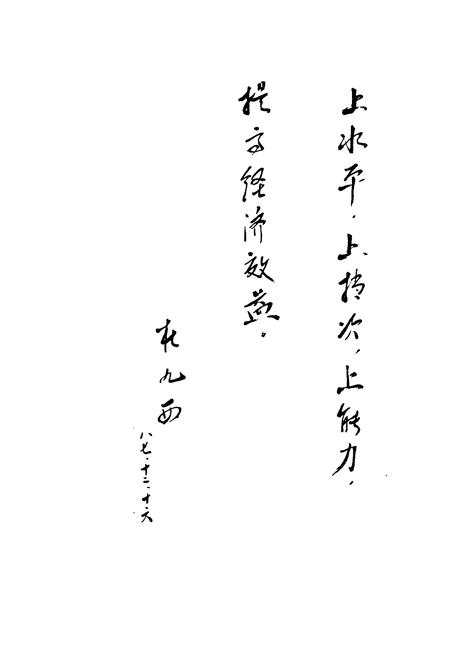 上水平，上档次，上能力，
提高经济效益。
杜九西
八七、十二、十六